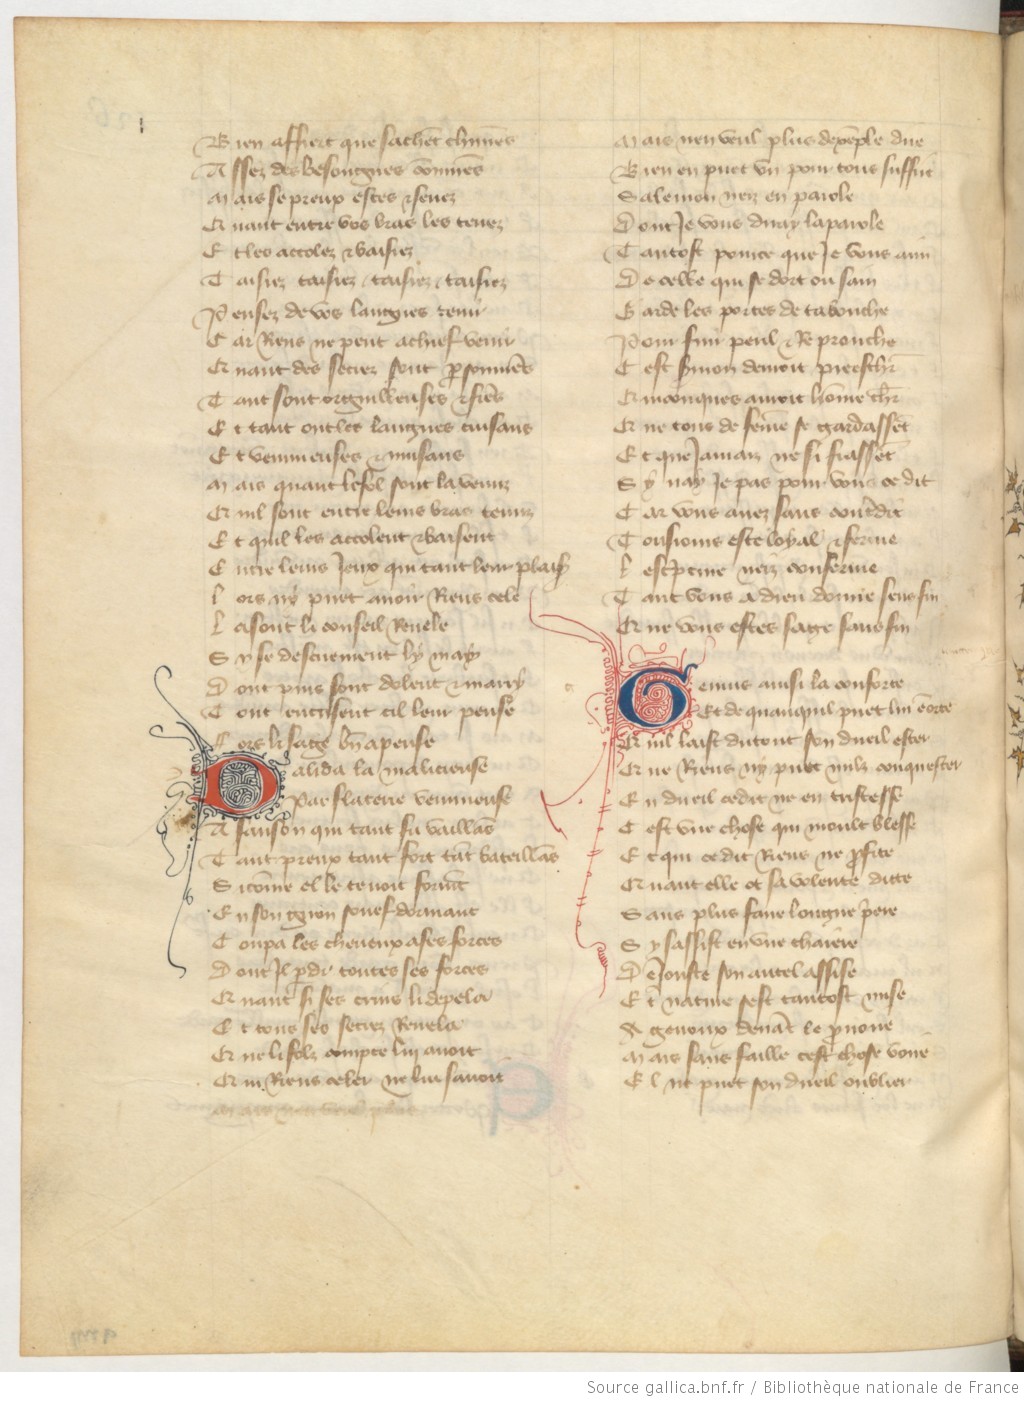 Bien affiert que sachēt chunēs
Assez des besoingnes ōmmēs
Mais se preux estes & senez
Quant entre vos bras les tenez
Et les accolez & baisiez
Taisiez taisiez taisiez taisiez
Pensez de vos langues tenir
Car Riens ne peut a chief venir
Quant des secrez sont ꝑsonniers
Tant sont orguilleuses & fiers
Et tant ont les langues cuisans
Et venimeuses & nuisans
Mais quant le fol sont la venuz
Quil sont entre leurs bras tenuz
Et quil les accolent & baisent
Entre leurs Jeux qui tant leur plaisēt
Lors ny puet avoir Riens cele
La sont li conseil Revele
Sy se descuevrent ly mary
Dont puis sont dolent & marry
Tout encusent cil leur pense
Fors li sage bn̄ apense
Dalida la malicieuse
Par flaterie venimeuse
A sanson qui tant fu vaillās
Tant preux tant fort tāt bateillās
Si cōme el le tenoit formēt
En son giron souef dormant
Coupa les cheveux a ses forces
Dont Jl ꝑdi toutes ses forces
Quant si ses crins li depela
Et tous ses secrez Revela
Que li folz compte lui avoit
Qui Riens celer ne lui savoit
Mais nen veul plus
Mais nen veul plus dexēple dire
Bien en puet vn pour tous suffire
Salemon neiz en parole
Dont Je vous diray la parole
Tantost pource que Je vous aim
De celle qui se dort ou sain
Garde les portes de ta bouche
Pour fuir peril & Reprouche
Cest sermon devroit preeschr̄
Quiconques auroit hōme chr̄
Que tous de fēme se gardassēt
Et que Jamaiz ne si fiassēt
Sy nay Je pas pour vous ce dit
Car vous avez sans cōtredit
Tousiours este loyal & ferme
Lescripture neiz conferme
Tant vous a dieu donne sens fin
Que vous estes sage sans fin
Genius ainsi la conforte
Et de quanquil puet lui ēorte
Quil laist du tout son dueil ester
Que Riens ny puet nulz conquester
En dueil ce dit ne en tristesse
Cest vne chose qui moult blesse
Et qui ce dit Riens ne ꝓfite
Quant elle ot sa volente ditte
Sans plus faire longue p̄iere
Sy sassist en vne chaiere
Dēioste son autel assise
Et nature sest tantost mise
A genoux devāt le p̄voire
Mais sans faille cest chose voire
El ne puet son dueil oublier
Source gallica.bnf.fr / Bibliothèque nationale de France